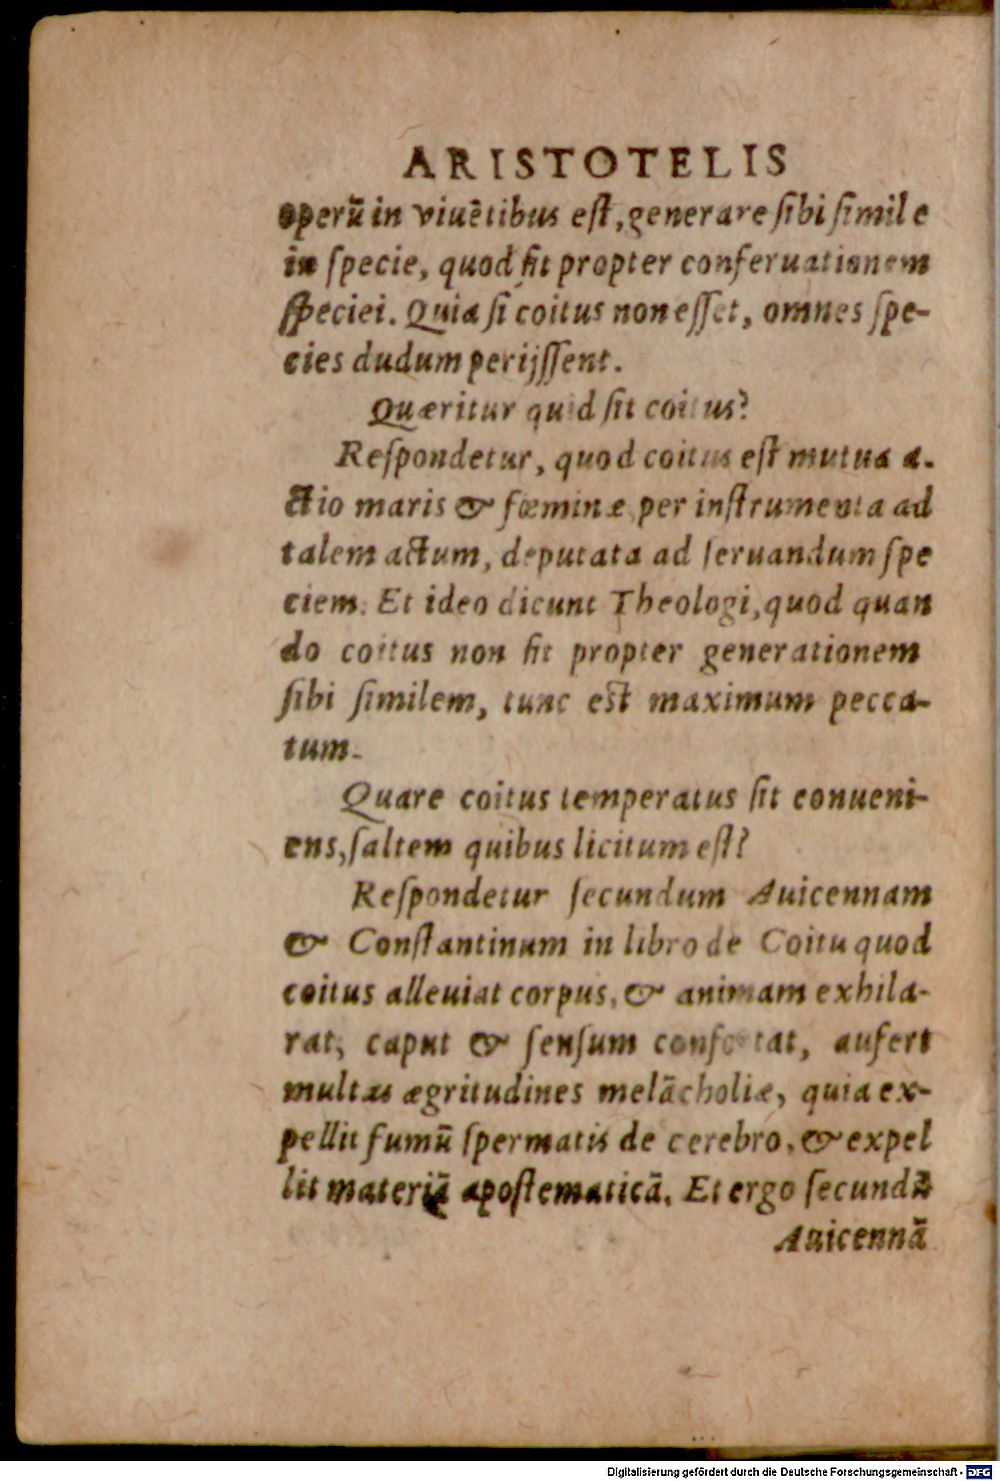 ARISTOTELIS
operū in viuētibus eſt, generare ſibi ſimile
in ſpecie, quod fit propter conſeruationem
ſpeciei. Quia ſi coitus non eſſet, omnes ſpe-
cies dudum perijſſent.
Quæritur quid ſit coitus?
Reſpondetur, quod coitus eſt mutua a-
ctio maris & fœminæ per inſtrumenta ad
talem actum, deputata ad ſeruandum ſpe
ciem. Et ideo dicunt Theologi, quod quan
do coitus non fit propter generationem
ſibi ſimilem, tunc eſt maximum pecca-
tum.
Quare coitus temperatus ſit conueni-
ens, ſaltem quibus licitum eſt?
Reſpondetur ſecundum Auicennam
& Conſtantinum in libro de Coitu quod
coitus alleuiat corpus, & animam exhila-
rat, caput & ſenſum confortat, aufert
multas ægritudines melācholiæ, quia ex-
pellit fumū ſpermatis de cerebro, & expel
lit materiā apoſtematicā. Et ergo ſecundū
Auicennā
Digitalisierung gefördert durch die Deutsche Forschungsgemeinschaft - DFG